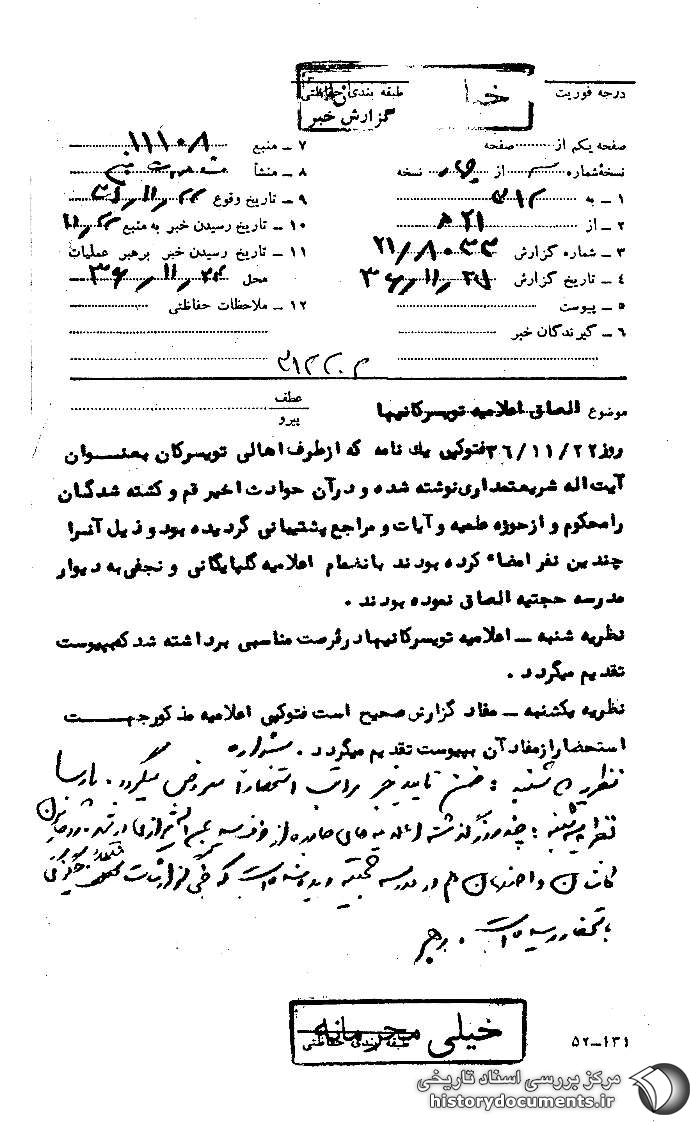 درجه فوریت
طبقه بندی حفاظتی
گزارش خبر
صفحه یکم از صفحه
نسخهٔ شماره از چهار نسخه
۱ ـ به ۳۱۲
۲ ـ از ۲۱
۳ ـ شماره گزارش ۲۱/۸۰۳۳
۴ ـ تاریخ گزارش
۵ ـ پیوست
۶ ـ گیرندگان خبر
۷ ـ منبع ۱۱۱۰۸
۸ ـ منشأ
۹ ـ تاریخ وقوع
۱۰ ـ تاریخ رسیدن خبر به منبع
۱۱ ـ تاریخ رسیدن خبر برهبر عملیات
محل
۱۲ ـ ملاحظات حفاظتی
موضوع الصاق اعلامیه تویسرکانیها
عطف
پیرو
روز ۳۶/۱۱/۲۲ فتوکپی یك نامه که ازطرف اهالی تویسرکان بعنوان
آیت اله شریعتمداری نوشته شده و درآن حوادث اخیر قم و کشته شدگان
رامحکوم و ازحوزه علمیه و آیات و مراجع پشتیبانی گردیده بود و ذیل آنرا
چندین نفر امضاء کرده بودند بانضمام اعلامیه گلپایگانی و نجفی به دیوار
مدرسه حجتیه الصاق نموده بودند .
نظریه شنبه ـ اعلامیه تویسرکانیها درفرصت مناسبی برداشته شد که بپیوست
تقدیم میگردد .
نظریه یکشنبه ـ مفاد گزارش صحیح است فتوکپی اعلامیه مذکور جهت
استحضار ازمفاد آن بپیوست تقدیم میگردد .
نظریه شنبه : ضمن تایید خبر مراتب استحضاراً معروض میگردد . پارسا
نظریه : چند روز گذشته اعلامیه های صادره از
و اصفهان هم در مدرسه حجتیه دیده شده است که طی گزارشات
باستحضار رسیده است .
خیلی محرمانه
طبقه بندی حفاظتی
۱۳۱ـ۵۲
مرکز بررسی اسناد تاریخی
historydocuments.ir